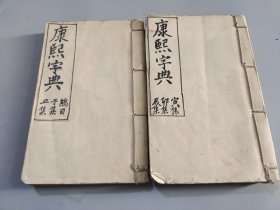 康熙字典
總目
子集
丑集
康熙字典
寅集
卯集
辰集